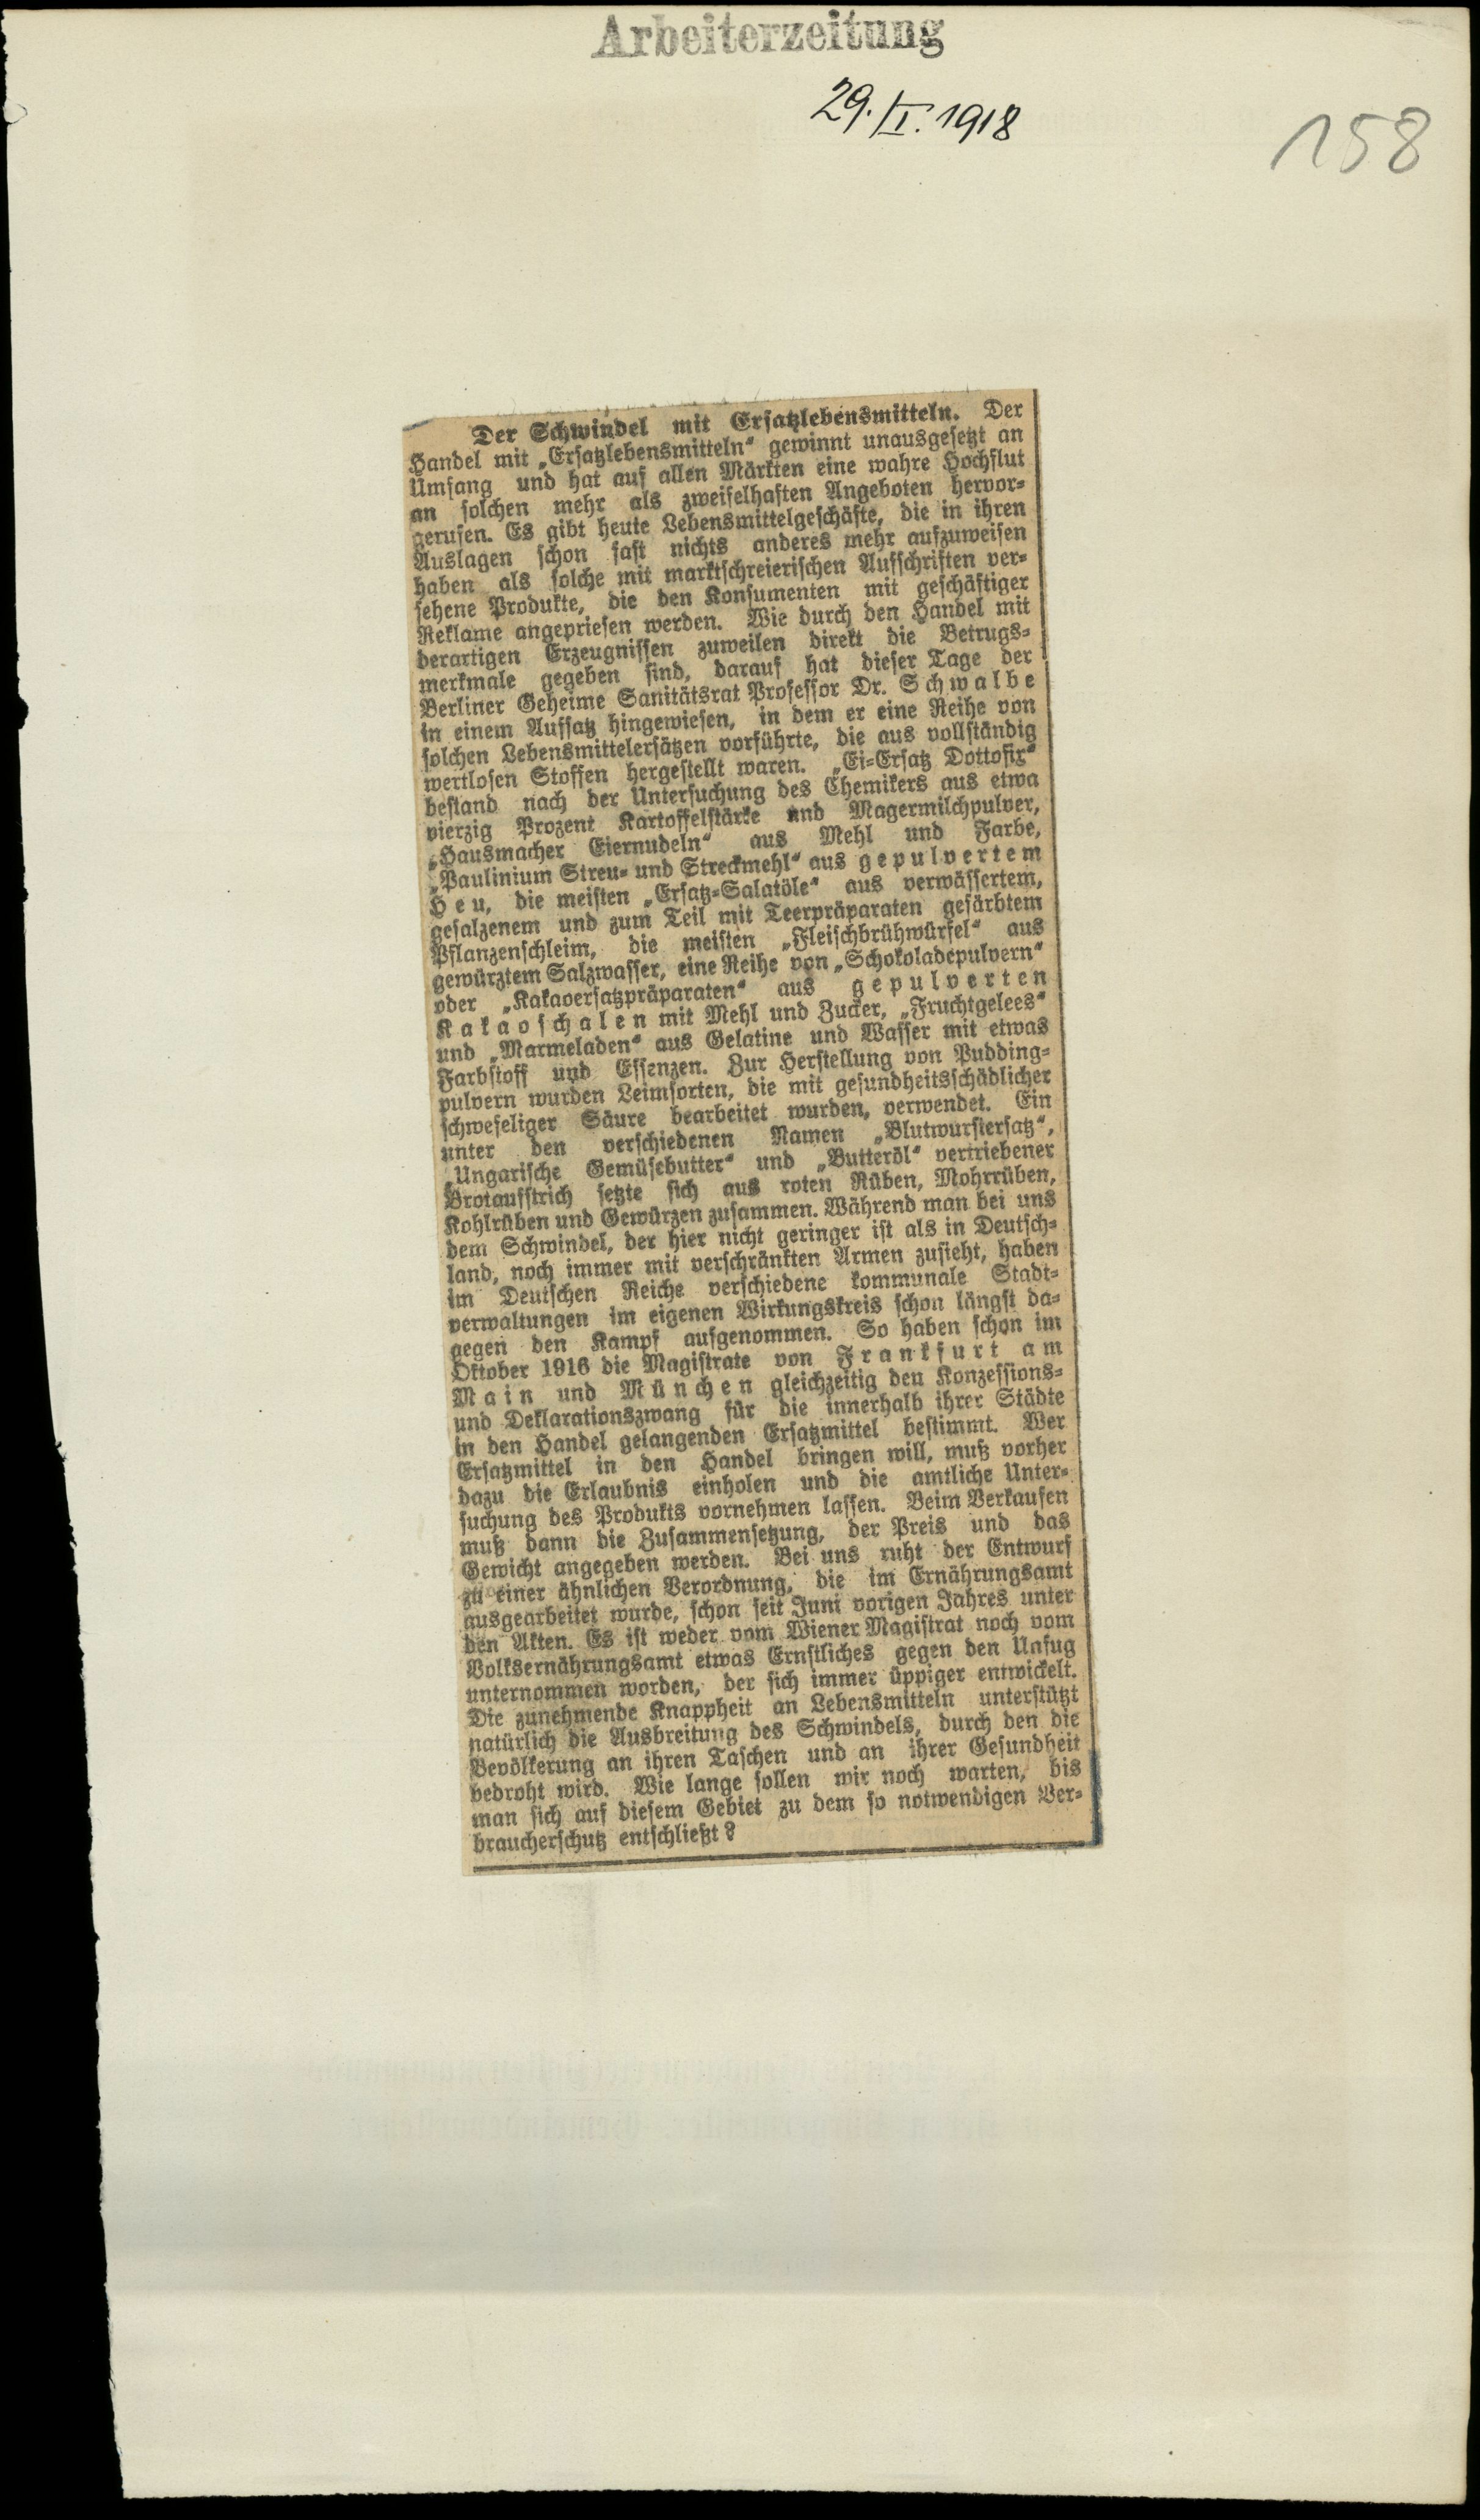 Arbeiterzeitung
29./I. 1918
158
Der Schwindel mit Ersatzlebensmitteln. Der
Handel mit „Ersatzlebensmitteln“ gewinnt unausgesetzt an
Umfang und hat auf allen Märkten eine wahre Hochflut
an solchen mehr als zweifelhaften Angeboten hervor-
gerufen. Es gibt heute Lebensmittelgeschäfte, die in ihren
Auslagen schon fast nichts anderes mehr aufzuweisen
haben als solche mit marktschreierischen Aufschriften ver-
sehene Produkte, die den Konsumenten mit geschäftiger
Reklame angepriesen werden. Wie durch den Handel mit
derartigen Erzeugnissen zuweilen direkt die Betrugs-
merkmale gegeben sind, darauf hat dieser Tage der
Berliner Geheime Sanitätsrat Professor Dr. Schwalbe
in einem Aufsatz hingewiesen, in dem er eine Reihe von
solchen Lebensmittelersätzen vorführte, die aus vollständig
wertlosen Stoffen hergestellt waren. „Ei-Ersatz Dottofix“
bestand nach der Untersuchung des Chemikers aus etwa
vierzig Prozent Kartoffelstärke und Magermilchpulver,
„Hausmacher Eiernudeln“ aus Mehl und Farbe,
„Paulinium Streu- und Streckmehl“ aus gepulvertem
Heu, die meisten „Ersatz-Salatöle“ aus verwässertem,
gesalzenem und zum Teil mit Teerpräparaten gefärbtem
Pflanzenschleim, die meisten „Fleischbrühwürfel“ aus
gewürztem Salzwasser, eine Reihe von „Schokoladepulvern“
oder „Kakaoersatzpräparaten“ aus gepulverten
Kakaoschalen mit Mehl und Zucker, „Fruchtgelees“
und „Marmeladen“ aus Gelatine und Wasser mit etwas
Farbstoff und Essenzen. Zur Herstellung von Pudding-
pulvern wurden Leimsorten, die mit gesundheitsschädlicher
schwefeliger Säure bearbeitet wurden, verwendet. Ein
unter den verschiedenen Namen „Blutwurstersatz“,
„Ungarische Gemüsebutter“ und „Butteröl“ vertriebener
Brotaufstrich setzte sich aus roten Rüben, Mohrrüben,
Kohlrüben und Gewürzen zusammen. Während man bei uns
dem Schwindel, der hier nicht geringer ist als in Deutsch-
land, noch immer mit verschränkten Armen zusieht, haben
im Deutschen Reiche verschiedene kommunale Stadt-
verwaltungen im eigenen Wirkungskreis schon längst da-
gegen den Kampf aufgenommen. So haben schon im
Oktober 1916 die Magistrate von Frankfurt am
Main und München gleichzeitig den Konzessions-
und Deklarationszwang für die innerhalb ihrer Städte
in den Handel gelangenden Ersatzmittel bestimmt. Wer
Ersatzmittel in den Handel bringen will, muß vorher
dazu die Erlaubnis einholen und die amtliche Unter-
suchung des Produkts vornehmen lassen. Beim Verkaufen
muß dann die Zusammensetzung, der Preis und das
Gewicht angegeben werden. Bei uns ruht der Entwurf
zu einer ähnlichen Verordnung, die im Ernährungsamt
ausgearbeitet wurde, schon seit Juni vorigen Jahres unter
den Akten. Es ist weder vom Wiener Magistrat noch vom
Volksernährungsamt etwas Ernstliches gegen den Unfug
unternommen worden, der sich immer üppiger entwickelt.
Die zunehmende Knappheit an Lebensmitteln unterstützt
natürlich die Ausbreitung des Schwindels, durch den die
Bevölkerung an ihren Taschen und an ihrer Gesundheit
bedroht wird. Wie lange sollen wir noch warten, bis
man sich auf diesem Gebiet zu dem so notwendigen Ver-
braucherschutz entschließt?